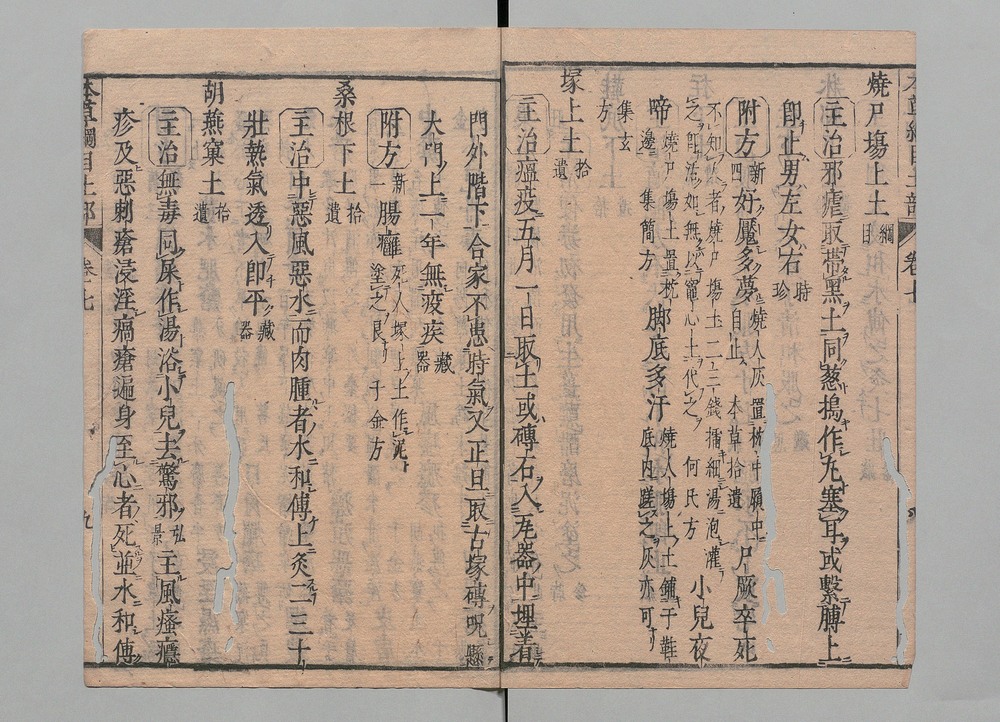 燒尸塲上土綱目
主治邪瘧取帶黑土同葱搗作丸塞耳或繫膊上
即止男左女右時珍
附方新四好魘多夢燒人灰置枕中履中自止本草拾遺尸厥卒死
不知人者燒尸塲土二三錢擂細湯泡灌
之即活如無以竈心土代之何氏方小兒夜
啼燒尸塲上土置枕邊集簡方脚底多汗燒人塲上土鋪于鞋底內蹉之灰亦可
集玄方
塚上土拾遺
主治瘟疫五月一日取土或磚石入瓦器中埋着
門外階下合家不患時氣又正旦取古塚磚呪懸
大門上一年無疫疾藏器
附方新一腸癰死人塚上土作泥塗之良千金方
桑根下土拾遺
主治中惡風惡水而肉腫者水和傅上灸二三十
壯熱氣透入即平藏器
胡燕窠土拾遺
主治無毒同屎作湯浴小兒去驚邪弘景主風瘙癮
疹及惡刺瘡浸淫瘑瘡遍身至心者死並水和傅
本草綱目土部 卷七 九